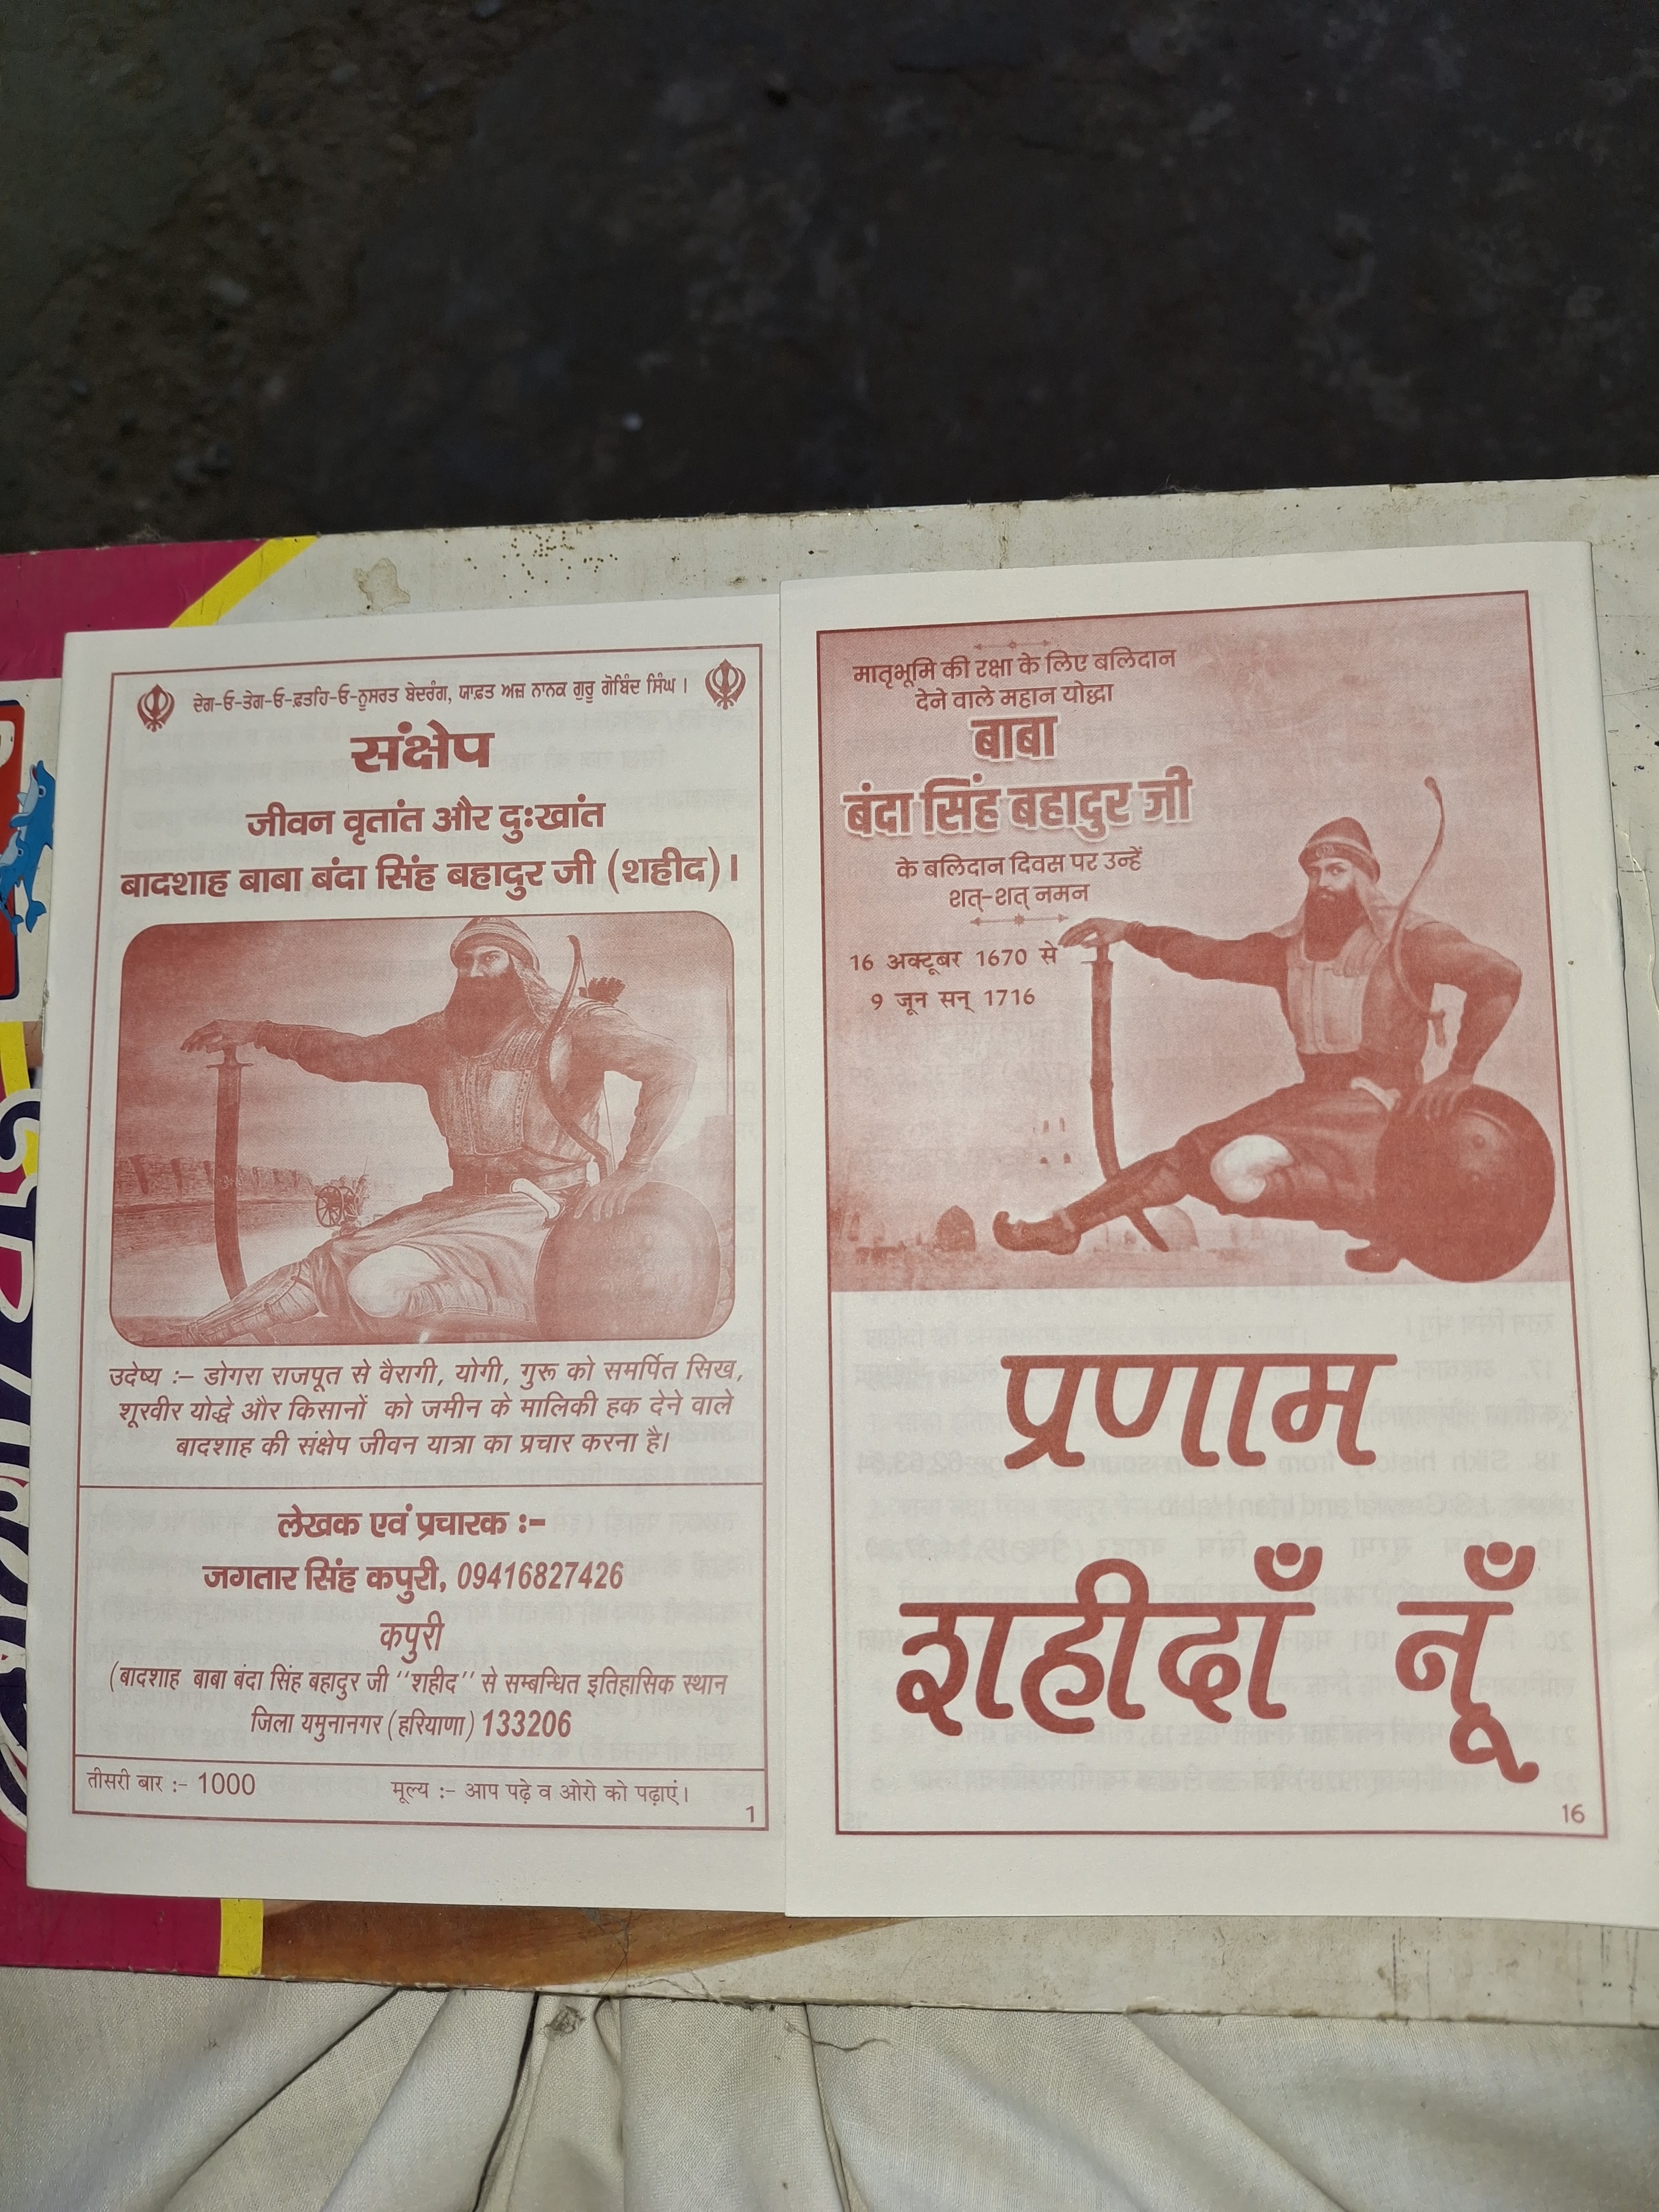 ਦੇਗ-ਓ-ਤੇਗ-ਓ-ਫ਼ਤਹਿ-ਓ-ਨੁਸਰਤ ਬੇਦਰੰਗ, ਯਾਫ਼ਤ ਅਜ਼ ਨਾਨਕ ਗੁਰੂ ਗੋਬਿੰਦ ਸਿੰਘ।
संक्षेप
जीवन वृतांत और दुःखांत
बादशाह बाबा बंदा सिंह बहादुर जी (शहीद)।
उदेष्य :– डोगरा राजपूत से वैरागी, योगी, गुरू को समर्पित सिख,
शूरवीर योद्धे और किसानों को जमीन के मालिकी हक देने वाले
बादशाह की संक्षेप जीवन यात्रा का प्रचार करना है।
लेखक एवं प्रचारक :–
जगतार सिंह कपुरी, 09416827426
कपुरी
(बादशाह बाबा बंदा सिंह बहादुर जी ''शहीद'' से सम्बन्धित इतिहासिक स्थान
जिला यमुनानगर (हरियाणा) 133206
तीसरी बार :– 1000 मूल्य :– आप पढ़े व ओरो को पढ़ाएं।
1
मातृभूमि की रक्षा के लिए बलिदान
देने वाले महान योद्धा
बाबा
बंदा सिंह बहादुर जी
के बलिदान दिवस पर उन्हें
शत्-शत् नमन
16 अक्टूबर 1670 से
9 जून सन् 1716
प्रणाम
शहीदाँ नूँ
16